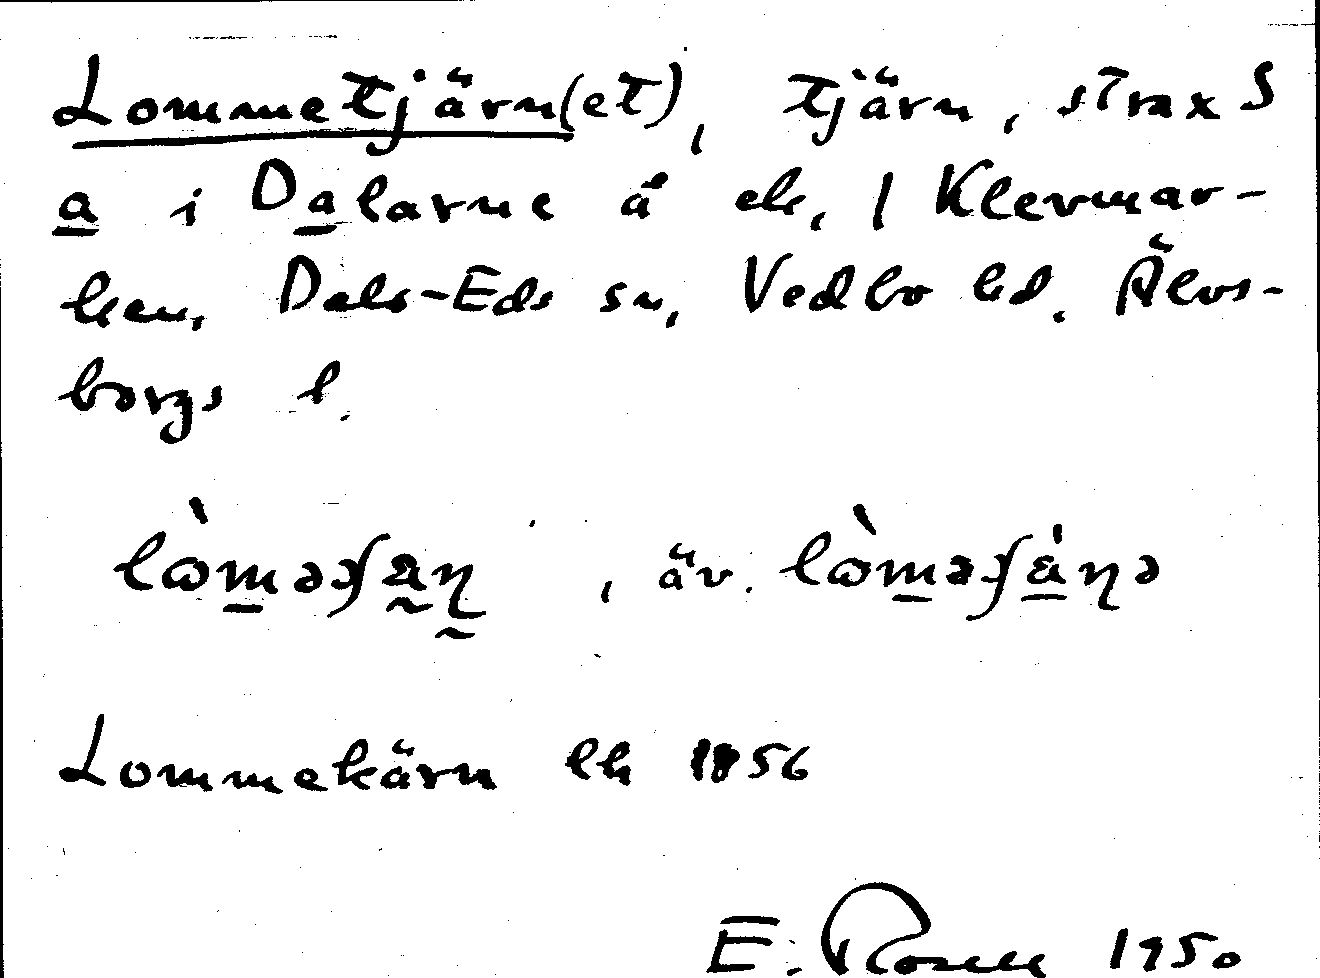 Lommetjärn(et), tjärn, strax S
a i Dalarne å ek, 1 Klevmar-
ken, Dals-Eds sn, Vedbo hd. Älvs-
borgs l.
lòməʃäɳ , äv. lòməʃä̀ɳə
Lommekärn lh 1856
E. Rosell 1950